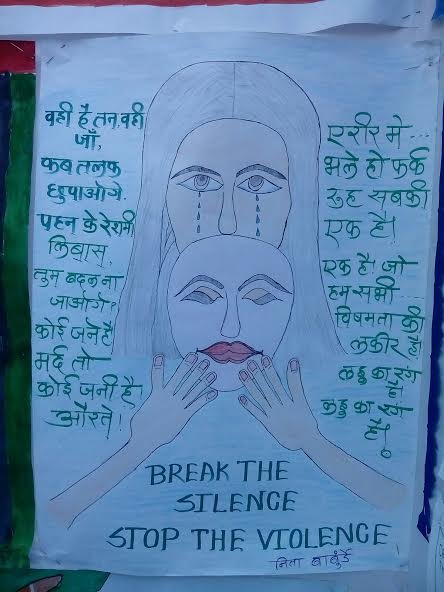 वही है तन,वही
जाँ,
कब तलक
छुपाओगे.
पहन के रेशमी
लिबास,
तुम बदल ना
जाओगे?
कोई जने है
मर्द तो
कोई जनी है
औरते!
शरीर मे ...
भले हो फर्क
रुह सबकी
एक है।
एक है। जो
हम सभी ...
विषमता की
लकीर है
लहु का रंग
लहु का रंग
है!
BREAK THE
SILENCE
STOP THE VIOLENCE